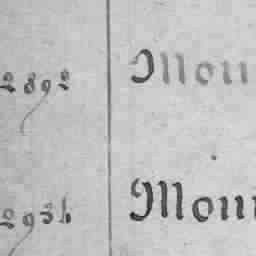 2892 Mou
2934 Mou